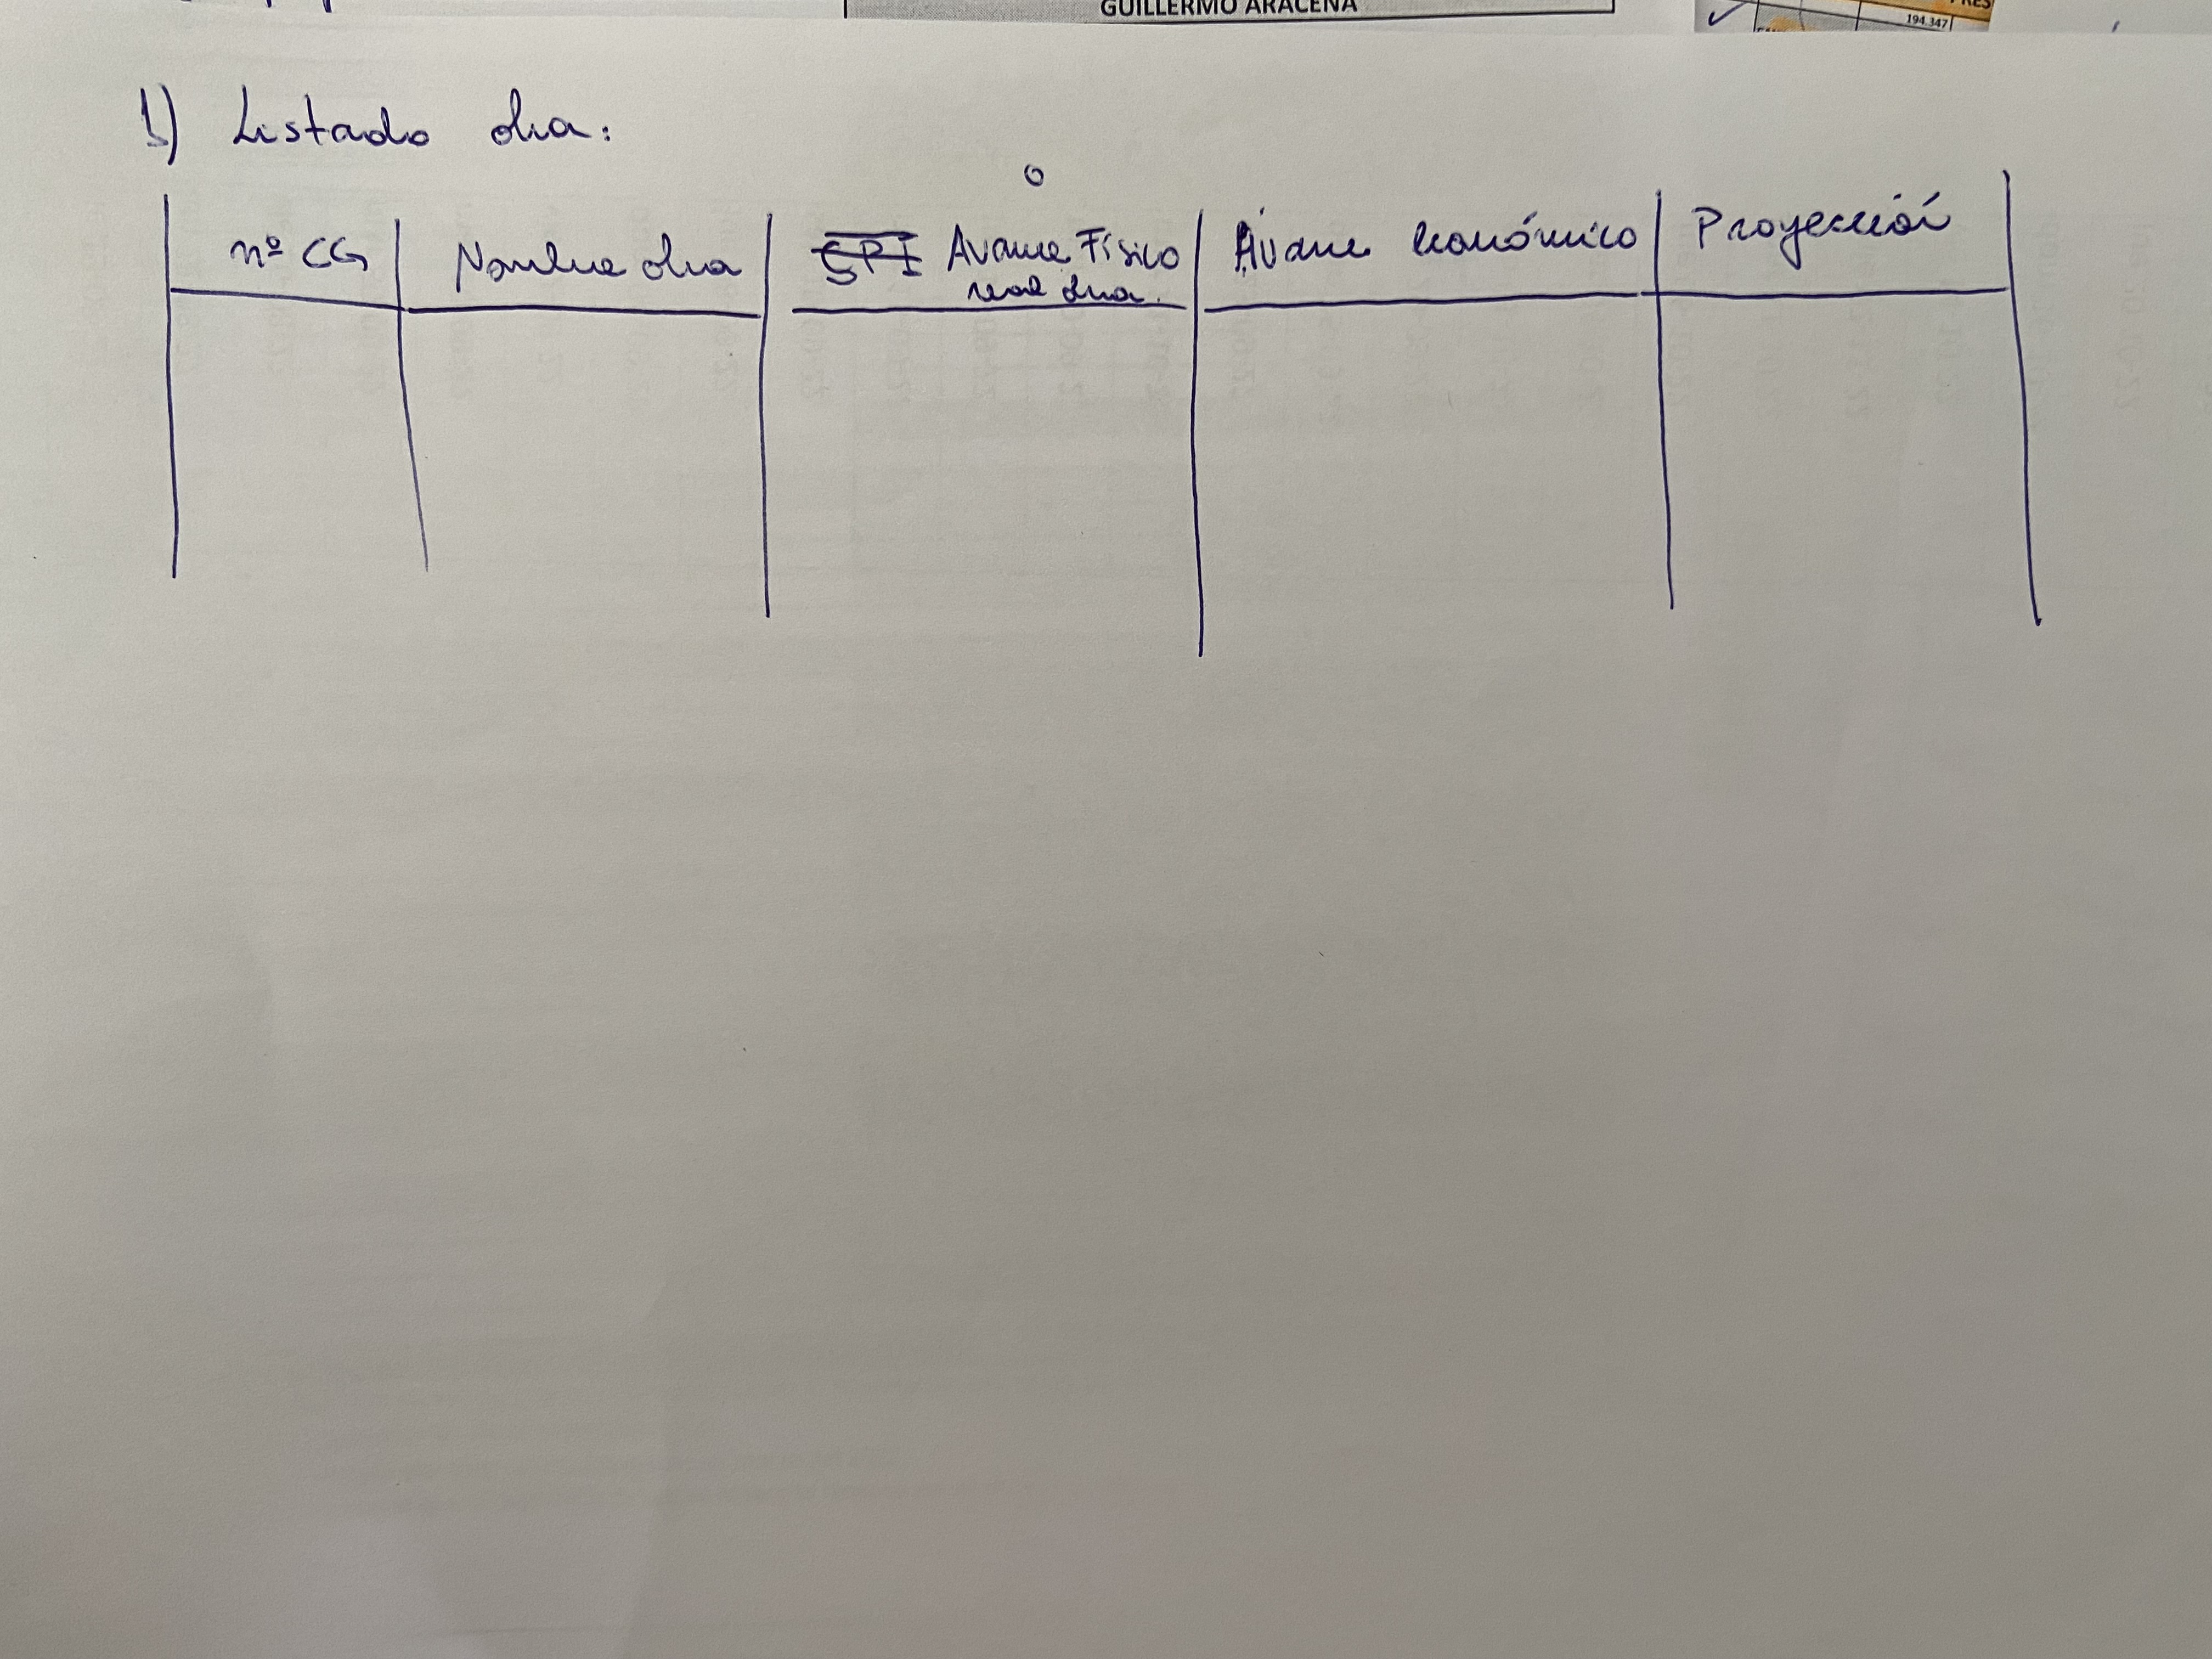 GUILLERMO ARACENA
194.347
1) Listado obra:
nº CG
Nombre obra
SPI Avance Físico
real obra.
Avance económico
Proyección